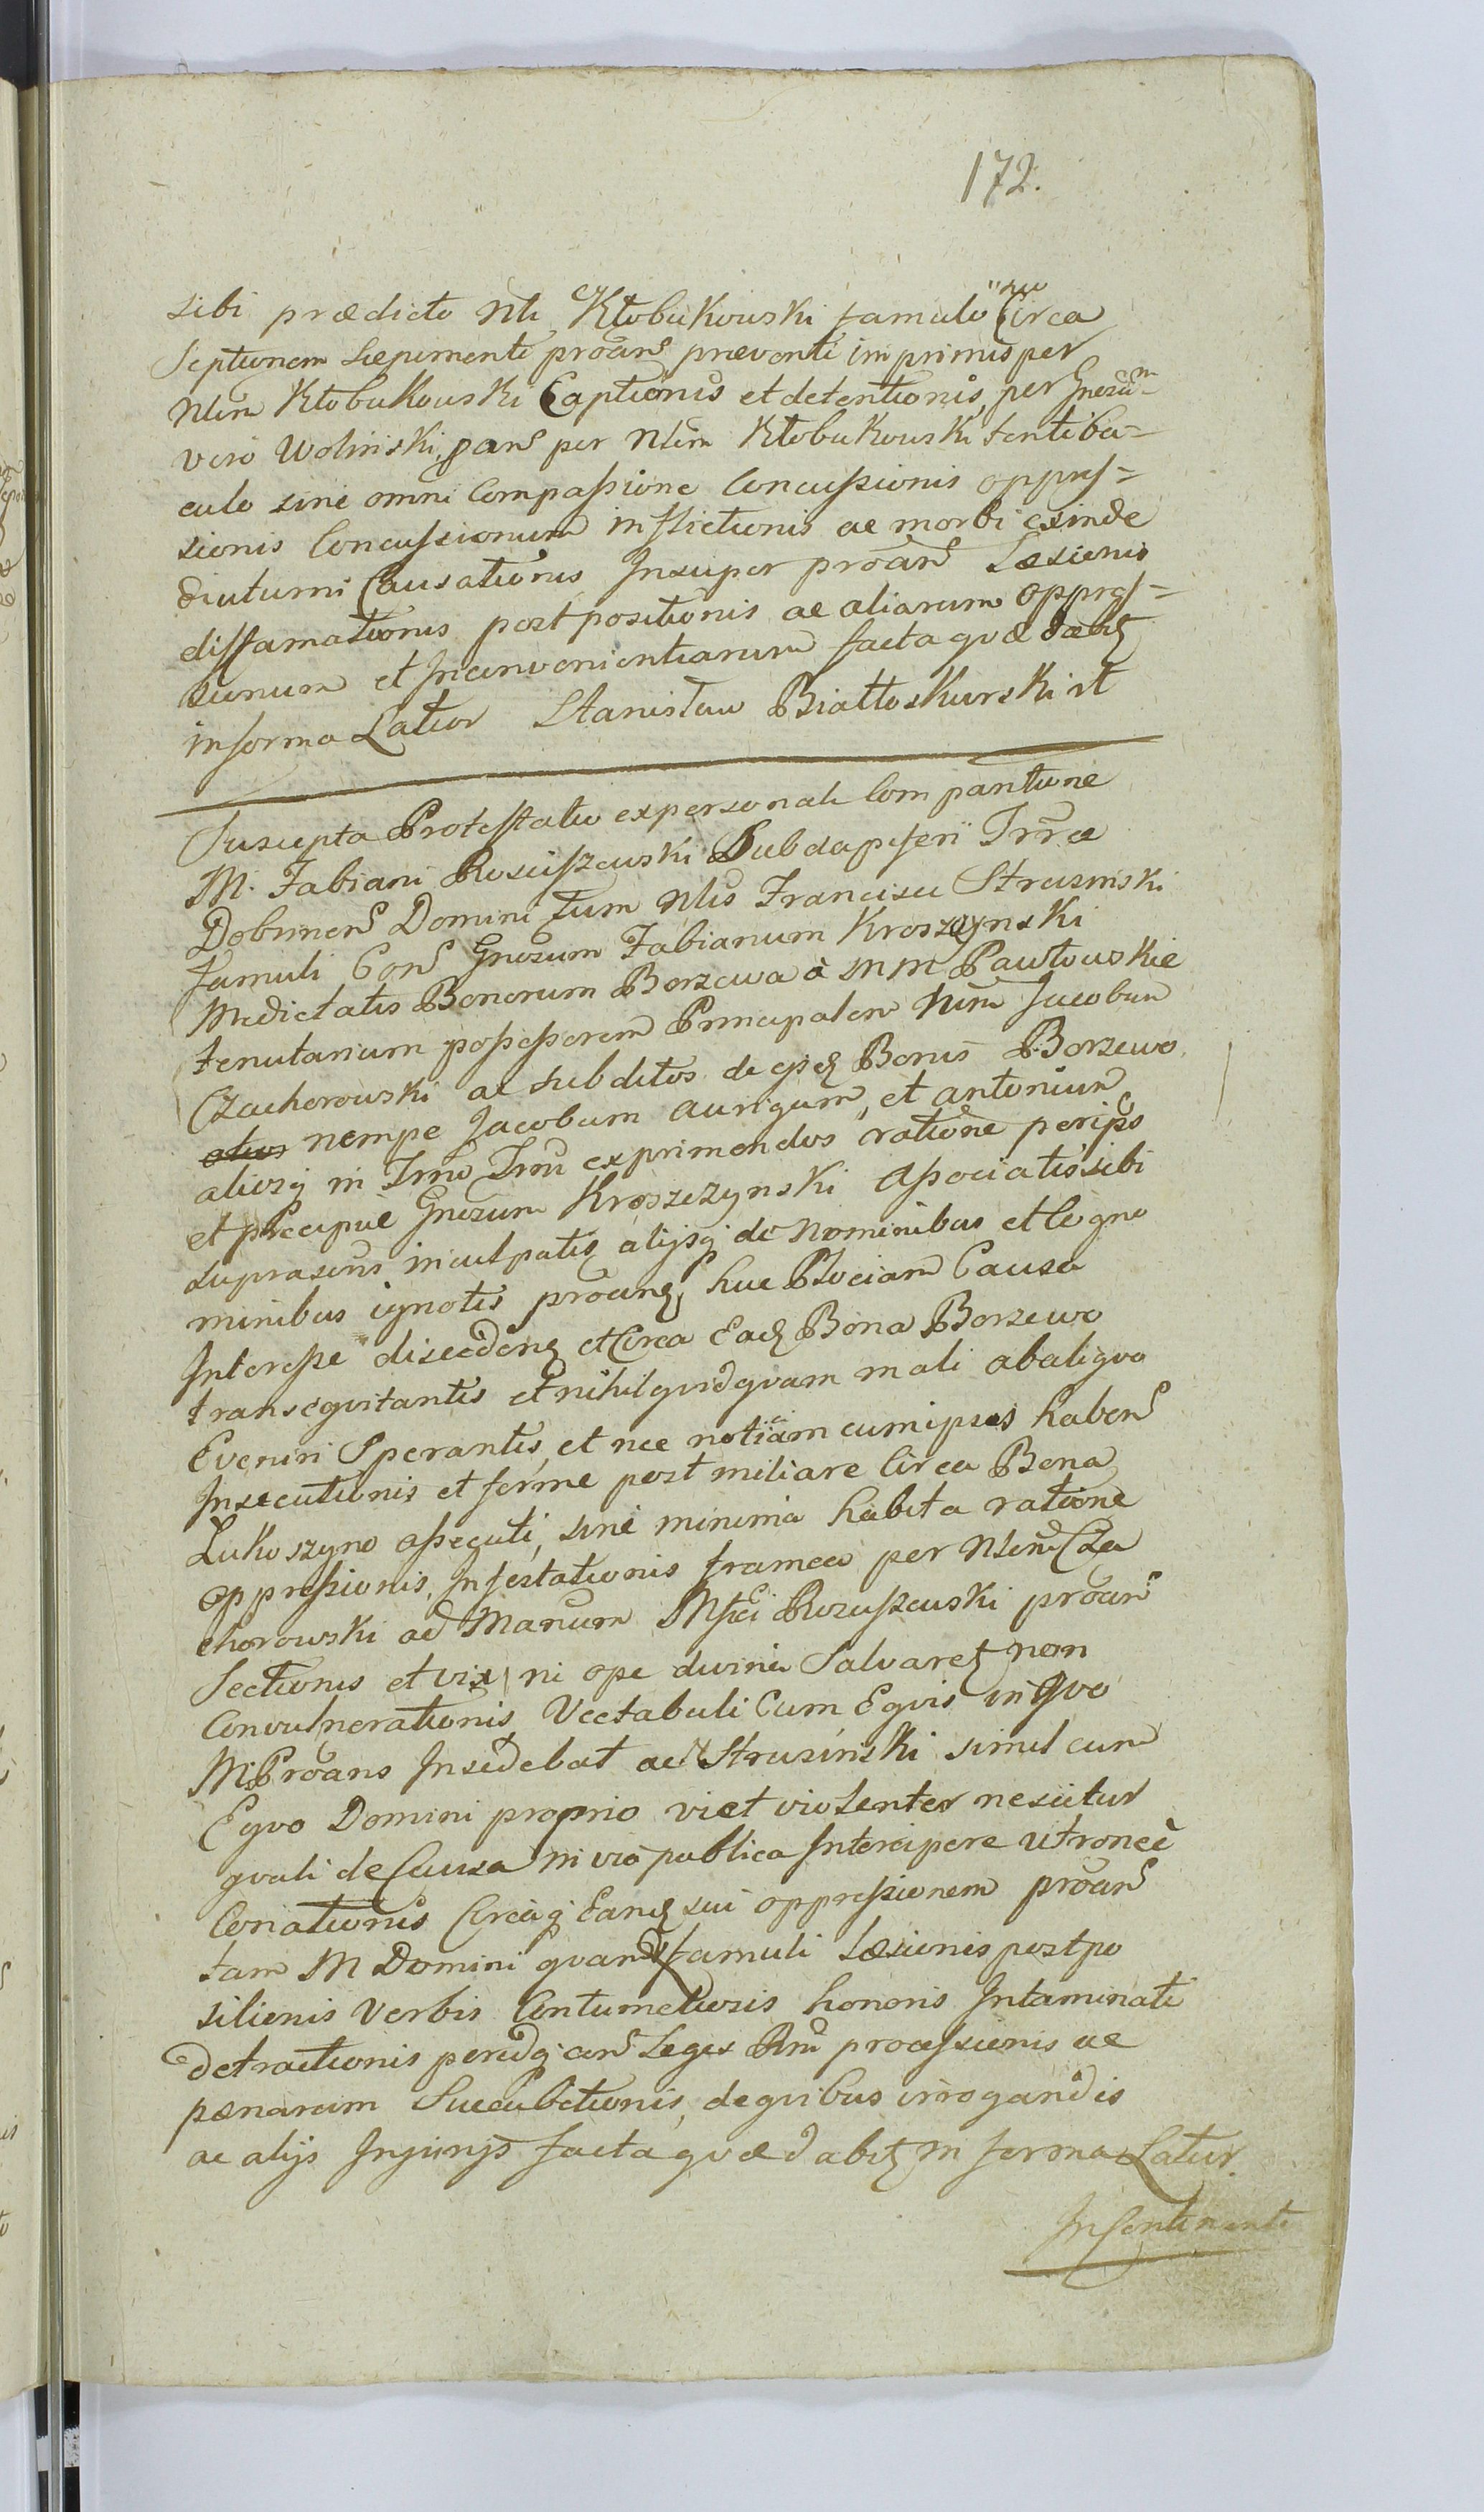 172.
sibi prædicto Nli Kłobukowski famulo suo Circa
Septionem Sepimenti proãns præventi imprimis per
Nlem Kłobukowski Captionis et detentionis, per Gnesum
vero Wolinski, pans per Nlem Kłobukowski tenti ba=
culo sine omni Compaſsione Concuſsionis oppreſ=
sionis Concuſsionum inflictionis ac morbi exinde
diuturni Causationis Insuper proãns Læsionis
diffamationis postpositionis ac aliarum oppreſ=
sionum et Inconvenientiarum facta quæ dabitʒ
in forma Latior Stanisław Białłoskurski mt
Suscepta Protestatio ex personali Comparitione
M. Fabiani Rosciſzewski Subdapiferi Trræ
Dobrinens Domini tum Nlis Francisci Strusinski
famuli Cons Gnosum Fabianum Kroszzynski
Medietatis Bonorum Borzewa à MM Pawłowskie
tenutarium poſseſsorem Principalem Nlem Jacobum
Czachorowski ac subditos de ejsdʒ Bonis Borzewo
nempe Jacobum Aurigam, et Antonium
aliosqʒ in Trno Trni exprimendos ratione per ipsos
et præcipuè Gnosum Kroszczynski Aſsociatis sibi
suprascriis inculpatis, alijsqʒ de Nominibus et Cogno
minibus ignotis proãnsʒ huc Plociam Causa
Intereſse discedensʒ et Circa Eadʒ Bona Borzewo
transequitantis et nihil quidquam mali ab aliquo
Eveniri Sperantis, et nec notiam cum ipsis habens
Insecutionis et ferme post miliare Circa Bona
Lukoszyno aſsecuti, sine minima habita ratione
oppreſsionis, Infestationis framea per Nlem Cza
chorowski ad Manum Mfici Rosciſzewski proãns
Sectionis et vix ni ope divina Salvaretʒ non
Convulnerationis Vectabuli Cum Equis in quo
M Proãns Insidebat ac N Strusinski simul cum
Equo Domini proprio vi et violenter nescitur
quali de Causa in via publica Intercipere ultronee
Conationis Circaqʒ Eandʒ sui oppreſsionem proãns
tam M Domini quam N famuli Læsionis postpo
sitionis Verbis Contumeliosis honoris Intaminati
detractionis perindqʒ cons Leges Rni proceſsionis ac
pænarum Succubitionis, de quibus irrogandis
ac alijs Injurijs facta quæ dabitʒ in forma Latior.
In Continenti